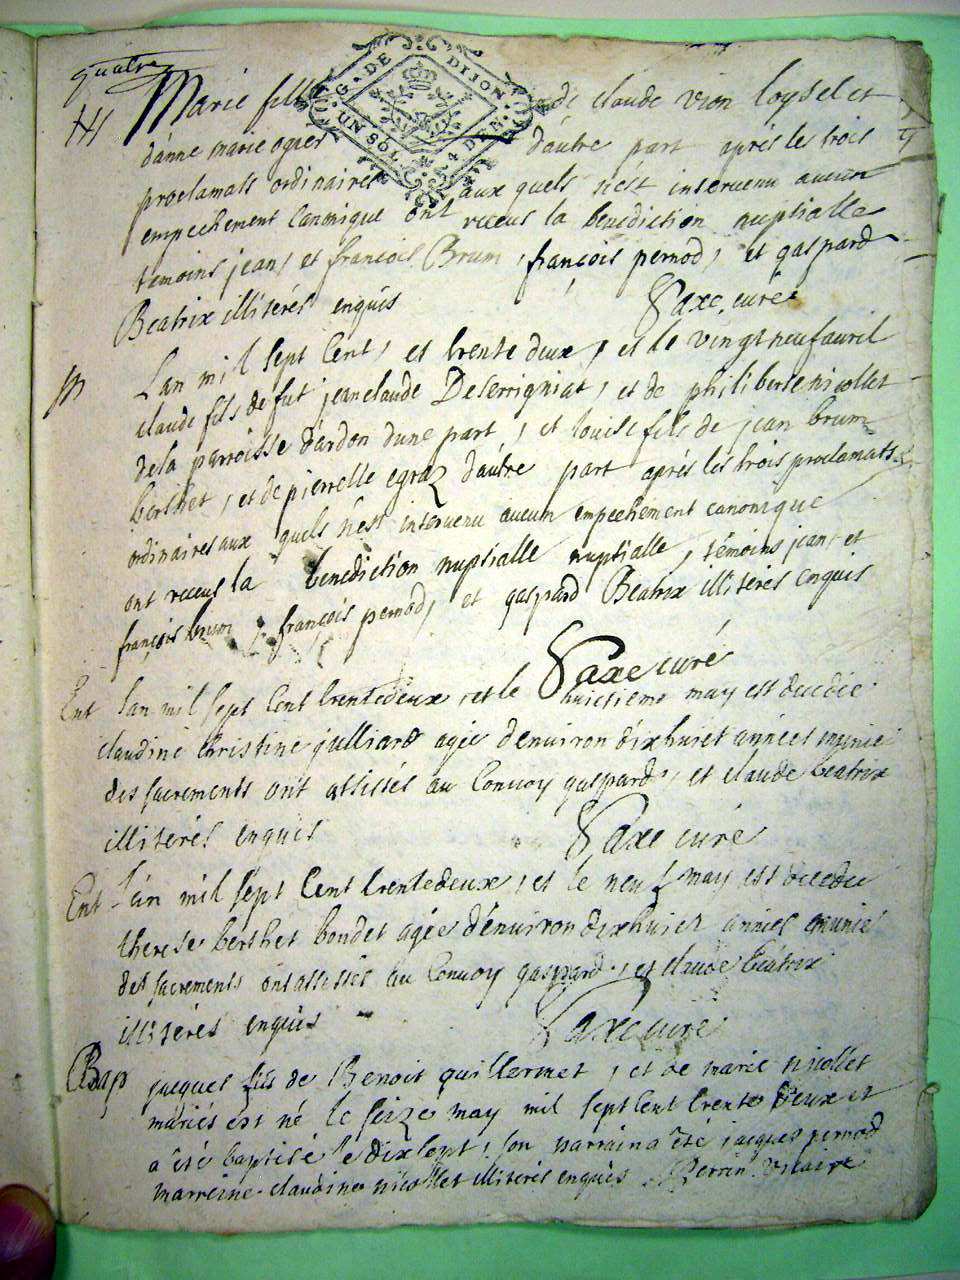 quatre
G. DE DIJON
UN SOL. 4 DEN.
M Marie fille de claude vion loysel et
d'anne marie ogier d'autre part aprés les trois
proclamats ordinaires aux quels n'est intervenu aucun
empechement canonique ont receus la benediction nuptialle
temoins jean, et françois Brum, françois pernod, et gaspard
Beatrix illiterés enquis
Saxe, curé
M Lan mil sept Cent, et trente deux, et le vingt neuf avril
claude fils de fut jean claude Deserrigniat, et de philiberte nicollet
de la parroisse d'ardon d'une part, et louise fils de jean brum
berthet, et de pierrelle egraz d'autre part aprés les trois proclamats
ordinaires aux quels n'est intervenu aucum empechement canonique
ont receus la benediction nuptialle nuptialle, témoins jean, et
françois brum, françois pernod, et gaspard Beatrix illiterés enquis
Saxe curé
Ent lan mil sept Cent trente deux, et le huictieme may est decedée
claudine christine julliard agée d'environ dix huict années munie
des sacrements ont assistés au Convoy gaspard, et claude beatrix
illiterés enquis
Saxe curé
Ent Lan mil sept Cent trente deux, et le neuf may est decedée
therese berthet bondet agée d'environ dix huict années munie
des sacrements ont assistés au Convoy gaspard, et claude béatrix
illiterés enquis
Saxe curé
Bap jacques fils de Benoit quillermet, et de marie nicollet
mariés est né le seize may mil sept cent trente deux et
a été baptisé le dix sept, son parrain a été jacques pernod
marreine claudine nicollet illiterés enquis. Perrin vicaire